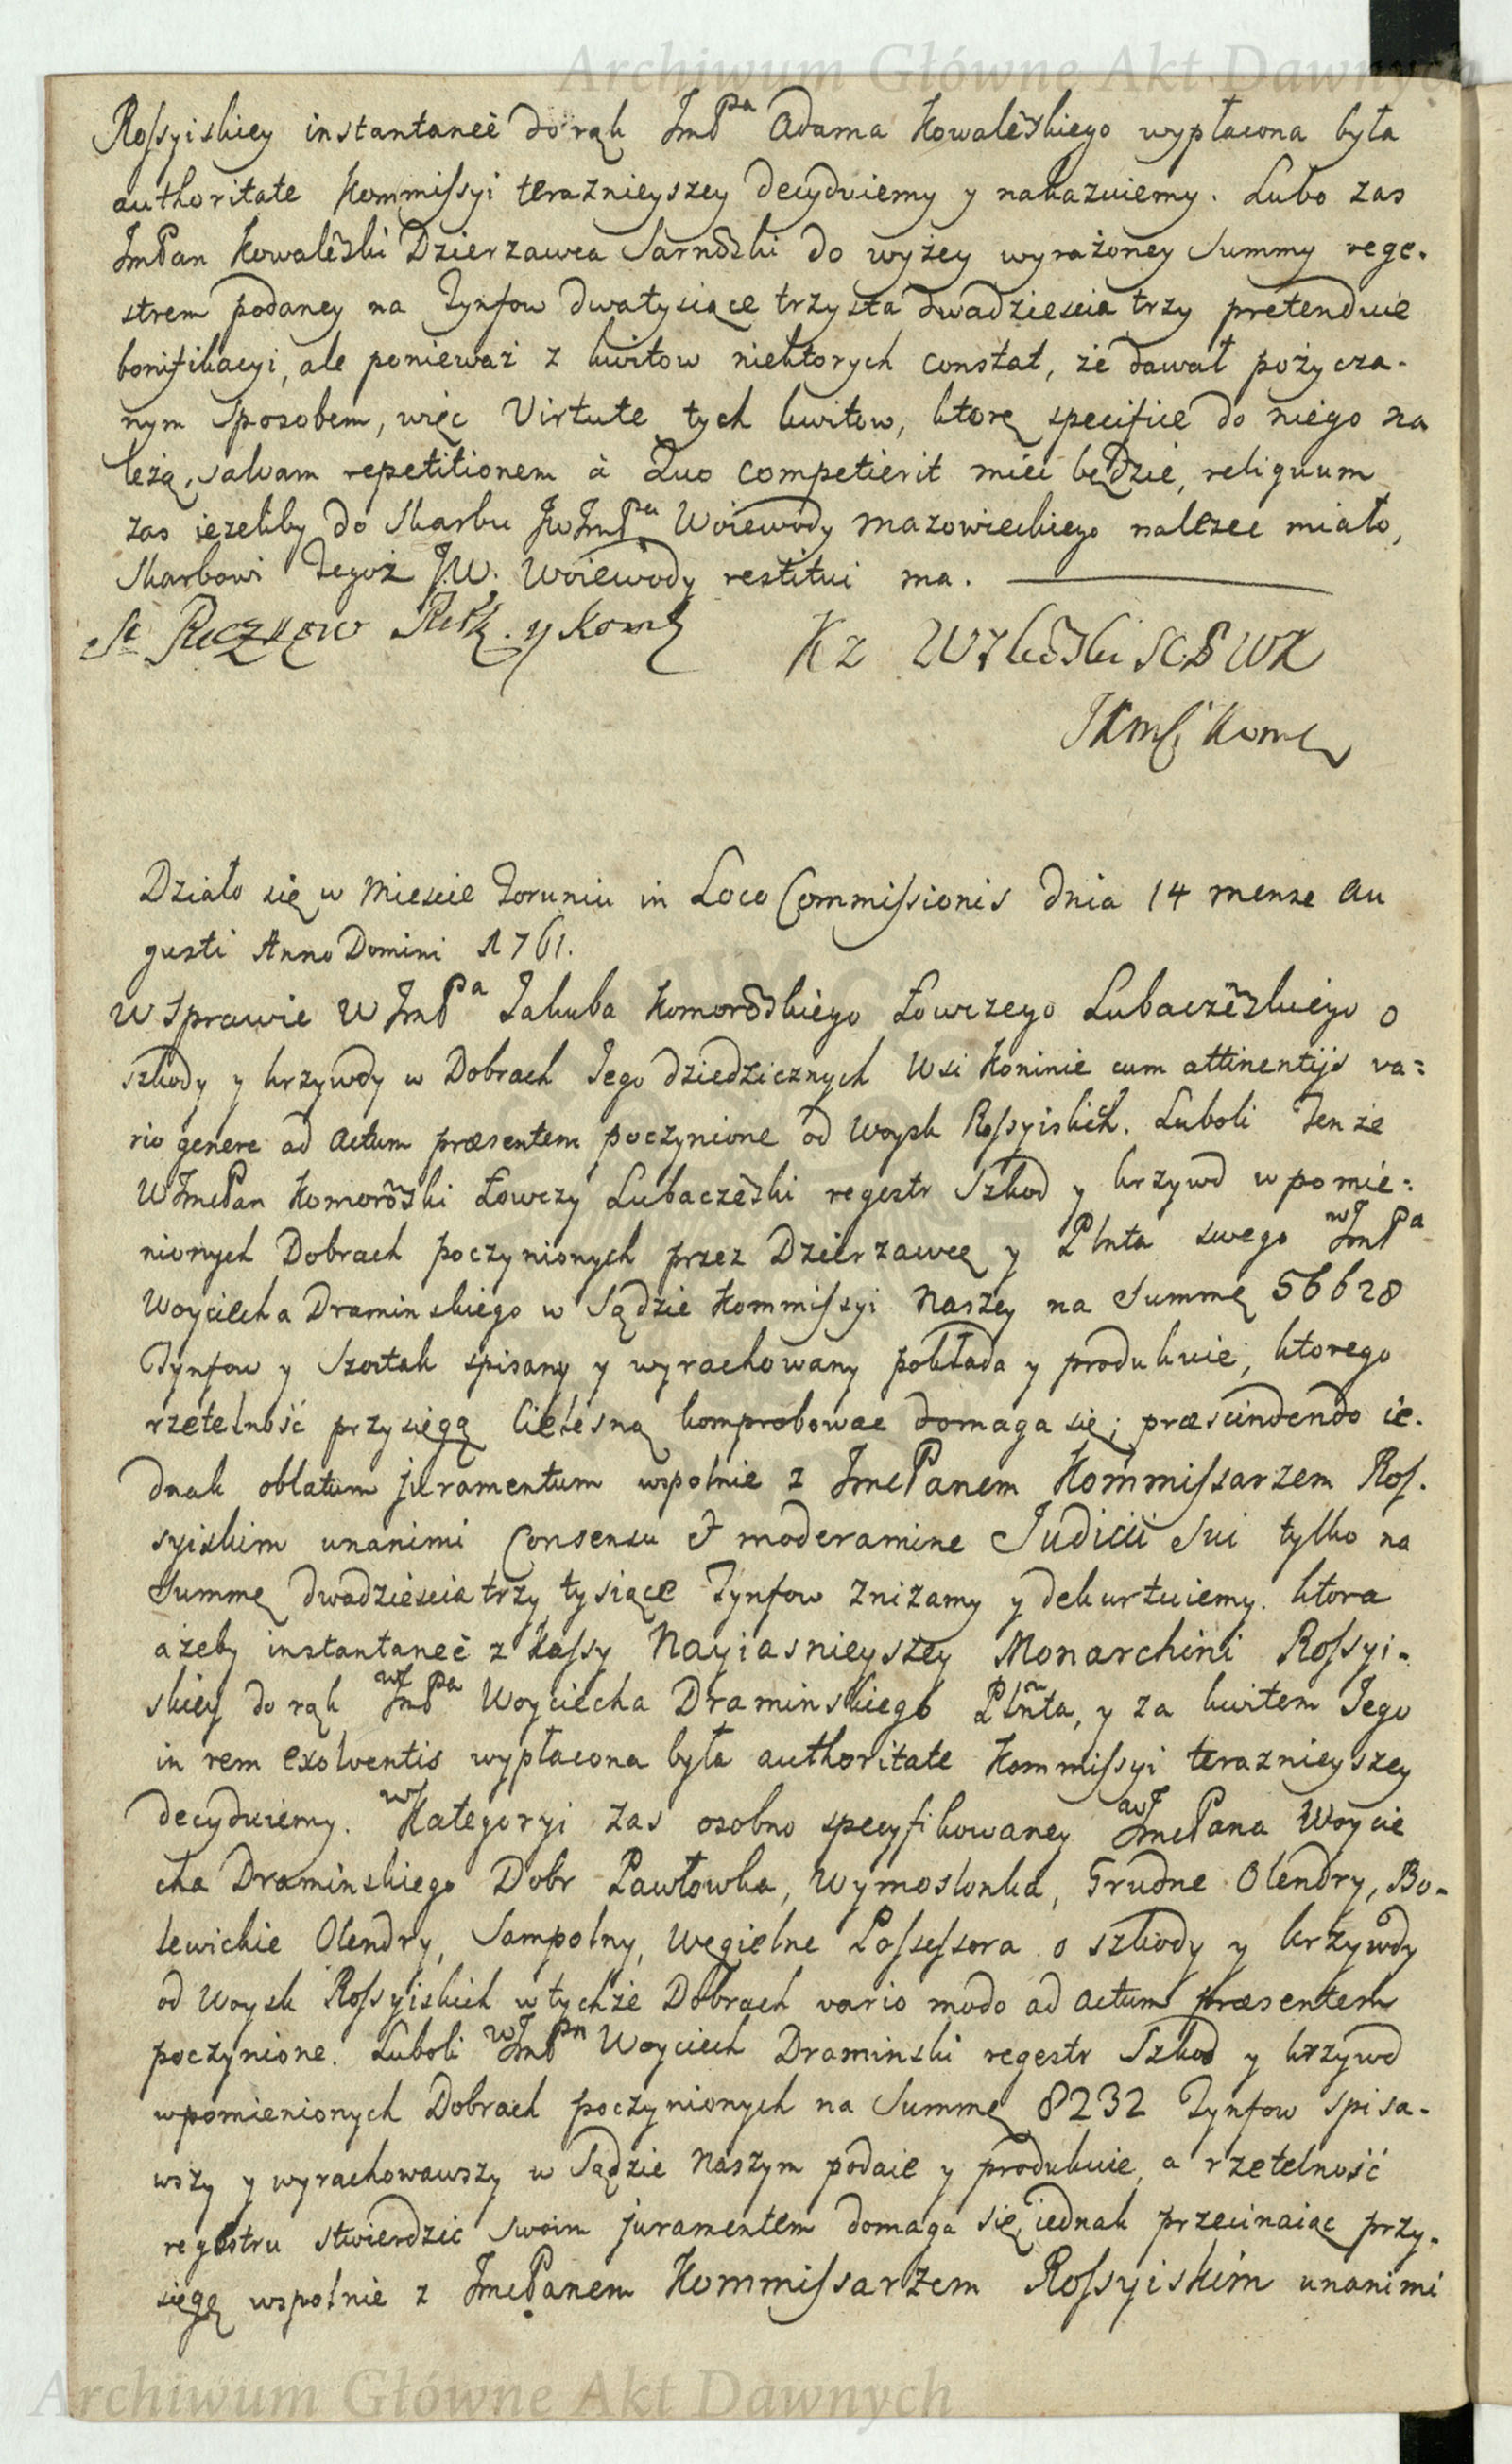 Archiwum Główne Akt Dawnych
Rossyiskiey instantaneè do rąk JmP<sup>pa</sup> Adama Kowalẽskiego wypłacona była
authoritate Kommissyi teraznieyszey decyduiemy y nakazuiemy. Lubo zas
JmPan Kowalẽski Dzierzawca Sarnõski do wyżey wyrażoney Summy rege-
strem podaney na Tynfow dwatysiące trzysta dwadziescia trzy pretenduie
bonifikacyi, ale ponieważ z kwitow niektorych constat, że dawał pożycza-
nym sposobem, więc Virtute tych kwitow, ktore specifice do niego na
leżą, salvam repetitionem à Quo competierit mieć będzie, reliquum
zas iezeliby do Skarbu JwJmPa Woiewody Mazowieckiego nalezec miało,
Skarbowi Tegoż J.W. Woiewody restitui ma.
Działo się w Miescie Toruniu in Loco Commissionis dnia 14 mense Au
gusti Anno Domini 1761.
W Sprawie W JmPa Jakuba Komorõskiego Łowczego Lubaczẽskiego o
szkody y krzywdy w Dobrach Jego dziedzicznych Wsi Koninie cum attinentijs va=
rio genere ad Actum præsentem poczynione od Woysk Rossyiskich. Luboli Tenże
WJmcPan Komorõski Łowczy Lubaczẽski regestr Szkod y krzywd w pomie=
nionych Dobrach poczynionych przez Dzierzawcę y Plnta swego wJmPa
Woyciecha Draminskiego w Sądzie Kommissyi Naszey na Summę 56628
Tynfow y Szostak spisany y wyrachowany pokłada y produkuie, ktorego
rzetelność przysięgą cielesną komprobowac domaga się; præscindendo ie-
dnak oblatum juramentum wspolnie z JmcPanem Kommissarzem Ros-
syiskim unanimi Consensu et moderamine Judicii Sui tylko na
Summę dwadziescia trzy tysiące Tynfow zniżamy y dekurtuiemy. ktora
ażeby instantaneè z Kassy Nayiasnieyszey Monarchini Rossyi-
skiey do rąk wJmPa Woyciecha Draminskiego Plñta, y za kwitem Jego
in rem exolventis wypłacona była authoritate Kommissyi teraznieyszey
decyduiemy. w Kategoryi zas osobno specyfikowaney wJmcPana Woycie
cha Draminskiego Dobr Pawłowka, Wymoslonka, Grudne Olendry, Bo-
lewickie Olendry, Sampolny, Węgielne Possessora o szkody y krzywdy
od Woysk Rossyiskich w tychże Dobrach vario modo ad actum præsentem
poczynione. Luboli wJmPn Woyciech Draminski regestr Szkod y krzywd
w pomienionych Dobrach poczynionych na Summę 8232 Tynfow spisa-
wszy y wyrachowawszy w Sądzie Naszym podaie y produkuie, a rzetelność
regestru stwierdzić swoim juramentem domaga się, iednak przecinaiąc przy-
sięgę wspolnie z JmcPanem Kommissarzem Rossyiskim unanimi
Archiwum Główne Akt Dawnych